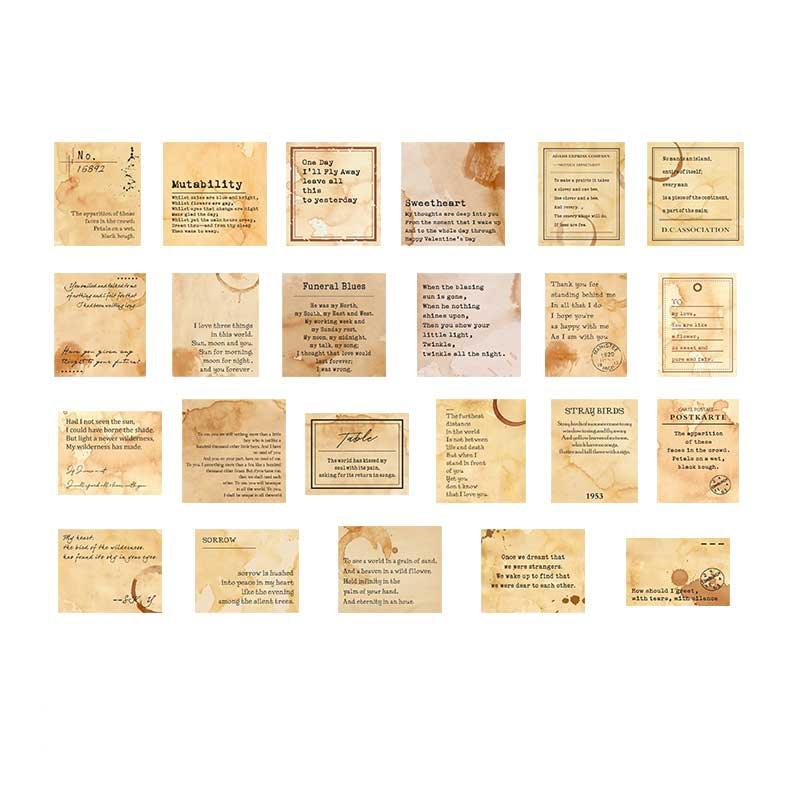 No.
16892
The apparition of these
faces in the crowd:
Petals on a wet,
black bough.
Mutability
Whilst skies are blue and bright,
Whilst flowers are gay,
Whilst eyes that change ere night
Make glad the day;
Whilst yet the calm hours creep,
Dream thou—and from thy sleep
Then wake to weep.
One Day
I'll Fly Away
leave all
this
to yesterday
Sweetheart
My thoughts are deep into you
From the moment that I wake up
And to the whole day through
Happy Valentine's Day
ADAMS EXPRESS COMPANY
To make a prairie it takes
a clover and one bee,
One clover and a bee,
And revery.
The revery alone will do,
If bees are few.
No man is an island,
entire of itself;
every man
is a piece of the continent,
a part of the main;
D.C.ASSOCIATION
You smiled and talked to me
of nothing and I felt for that
I had been waiting long
Have you given any
thought to your future?
I love three things
in this world.
Sun, moon and you.
Sun for morning,
moon for night,
and you forever.
Funeral Blues
He was my North,
my South, my East and West.
My working week and
my Sunday rest,
My noon, my midnight,
my talk, my song;
I thought that love would
last forever;
I was wrong.
When the blazing
sun is gone,
When he nothing
shines upon,
Then you show your
little light,
Twinkle,
twinkle all the night.
Thank you for
standing behind me
In all that I do
I hope you're
as happy with me
As I am with you
TO
my love,
You are like
a flower,
so sweet and
pure and fair.
Had I not seen the sun,
I could have borne the shade.
But light a newer wilderness,
My wilderness has made.
To you, I am nothing more than a fox like a hundred
thousand other foxes. But if you tame me,
then we shall need each
other. To me, you will be unique
in all the world. To you,
I shall be unique in all the world
Table
The world has kissed my
soul with its pain,
asking for its return in songs.
The furthest
distance
in the world
Is not between
life and death
But when I
stand in front
of you
Yet you
don't know
that I love you.
STRAY BIRDS
Stray birds of summer come to my
window to sing and fly away.
And yellow leaves of autumn,
which have no songs,
flutter and fall there with a sign.
1953
CARTE POSTALE
POSTKARTE
The apparition
of these
faces in the crowd.
Petals on a wet,
black bough.
My heart,
the bird of the wilderness,
has found its sky in your eyes.
SORROW
sorrow is hushed
into peace in my heart
like the evening
among the silent trees.
To see a world in a grain of sand,
And a heaven in a wild flower,
Hold infinity in the
palm of your hand,
And eternity in an hour.
Once we dreamt that
we were strangers.
We wake up to find that
we were dear to each other.
How should I greet,
with tears, with silence